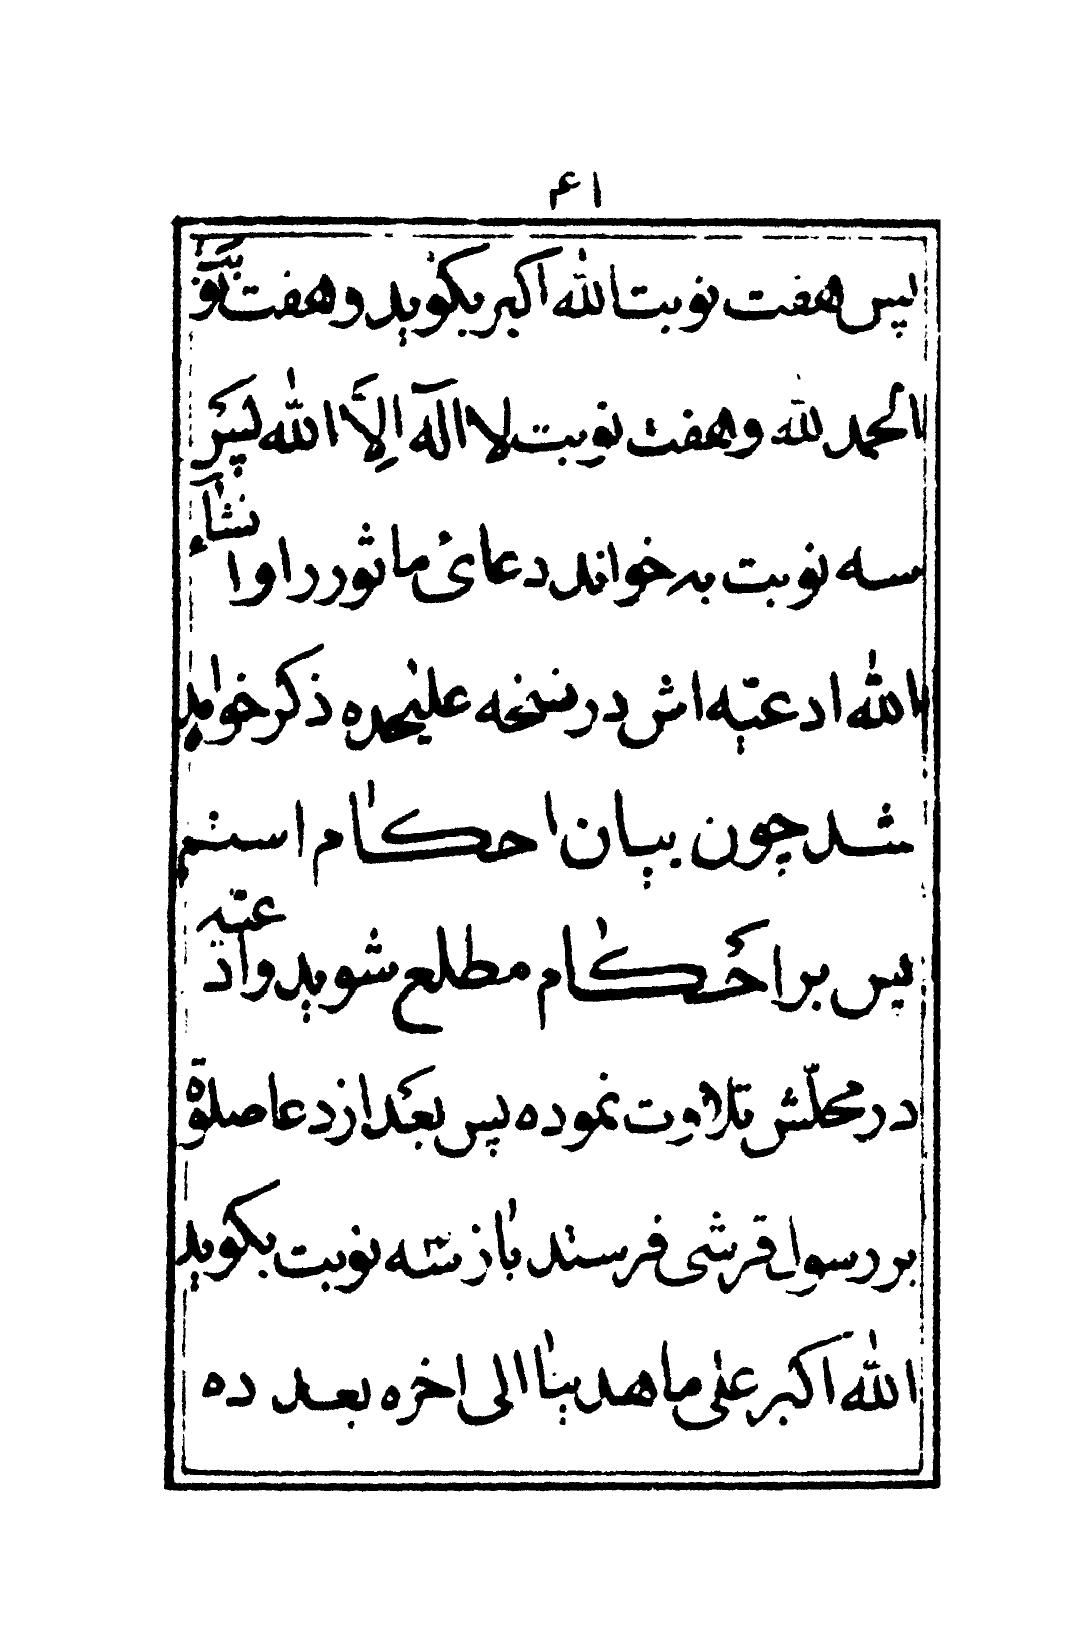 ۴۱
پس هفت نوبت الله اکبر بکوید و هفت نوبت
الحمد لله و هفت نوبت لا اله الا الله پس
سه نوبت به خواند دعائ ماثور را و انشاء
الله ادعیه اش در نسخه علیحده ذکر خواهد
شد چون بیان احکام استنم
پس بر احکام مطلع شوید و ادعیه
در محلش تلاوت نموده پس بعد از دعا صلوة
بر رسول قرشی فرستد باز سه نوبت بکوید
الله اکبر علی ما هدینا الی اخره بعد ده